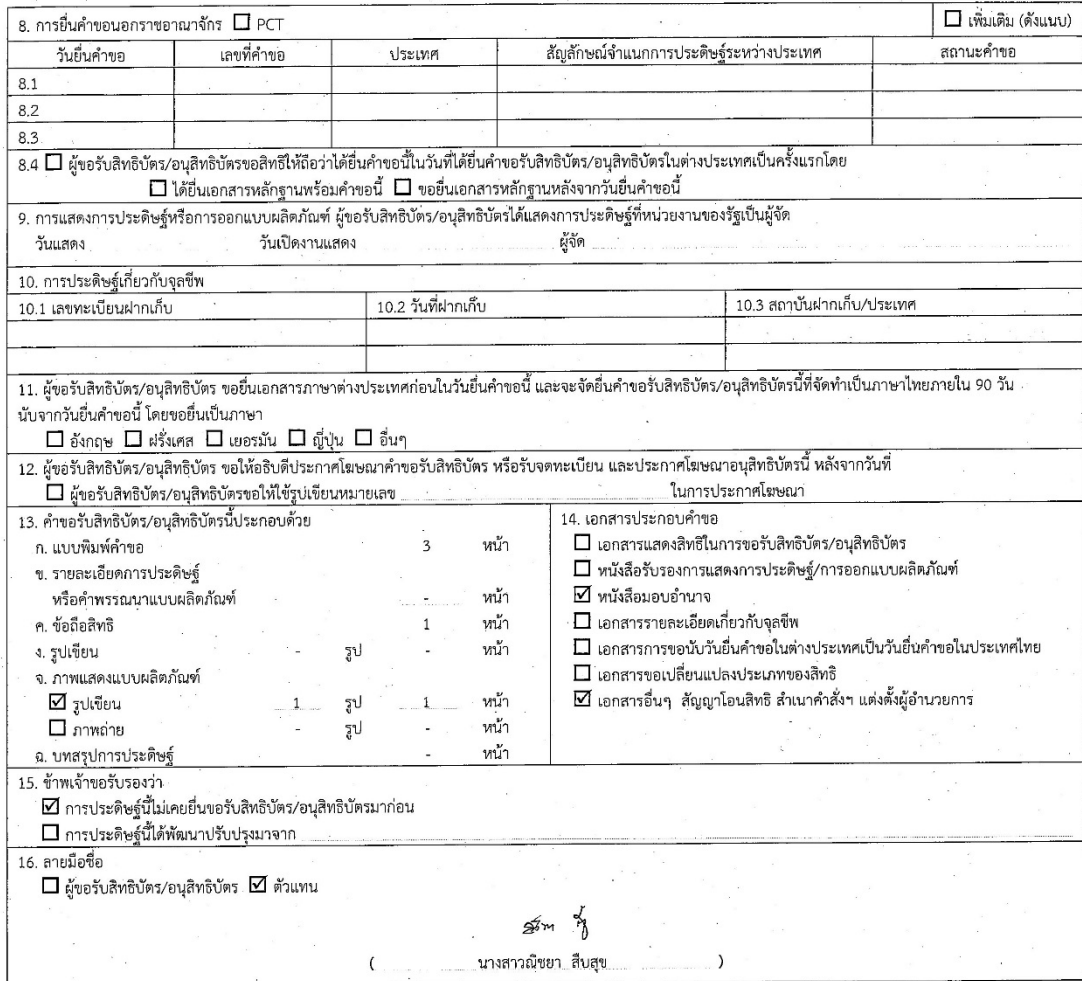 8. การยื่นคำขอนอกราชอาณาจักร ☐ PCT ☐ เพิ่มเติม (ดังแนบ)
วันยื่นคำขอ เลขที่คำขอ ประเทศ สัญลักษณ์จำแนกการประดิษฐ์ระหว่างประเทศ สถานะคำขอ
8.1
8.2
8.3
8.4 ☐ ผู้ขอรับสิทธิบัตร/อนุสิทธิบัตรขอสิทธิให้ถือว่าได้ยื่นคำขอนี้ในวันที่ได้ยื่นคำขอรับสิทธิบัตร/อนุสิทธิบัตรในต่างประเทศเป็นครั้งแรกโดย
☐ ได้ยื่นเอกสารหลักฐานพร้อมคำขอนี้ ☐ ขอยื่นเอกสารหลักฐานหลังจากวันยื่นคำขอนี้
9. การแสดงการประดิษฐ์หรือการออกแบบผลิตภัณฑ์ ผู้ขอรับสิทธิบัตร/อนุสิทธิบัตรได้แสดงการประดิษฐ์ที่หน่วยงานของรัฐเป็นผู้จัด
วันแสดง วันเปิดงานแสดง ผู้จัด
10. การประดิษฐ์เกี่ยวกับจุลชีพ
10.1 เลขทะเบียนฝากเก็บ 10.2 วันที่ฝากเก็บ 10.3 สถาบันฝากเก็บ/ประเทศ
11. ผู้ขอรับสิทธิบัตร/อนุสิทธิบัตร ขอยื่นเอกสารภาษาต่างประเทศก่อนในวันยื่นคำขอนี้ และจะจัดยื่นคำขอรับสิทธิบัตร/อนุสิทธิบัตรนี้ที่จัดทำเป็นภาษาไทยภายใน 90 วัน
นับจากวันยื่นคำขอนี้ โดยขอยื่นเป็นภาษา
☐ อังกฤษ ☐ ฝรั่งเศส ☐ เยอรมัน ☐ ญี่ปุ่น ☐ อื่นๆ
12. ผู้ขอรับสิทธิบัตร/อนุสิทธิบัตร ขอให้อธิบดีประกาศโฆษณาคำขอรับสิทธิบัตร หรือรับจดทะเบียน และประกาศโฆษณาอนุสิทธิบัตรนี้ หลังจากวันที่
☐ ผู้ขอรับสิทธิบัตร/อนุสิทธิบัตรขอให้ใช้รูปเขียนหมายเลข ในการประกาศโฆษณา
13. คำขอรับสิทธิบัตร/อนุสิทธิบัตรนี้ประกอบด้วย
ก. แบบพิมพ์คำขอ 3 หน้า
ข. รายละเอียดการประดิษฐ์
หรือคำพรรณนาแบบผลิตภัณฑ์ - หน้า
ค. ข้อถือสิทธิ 1 หน้า
ง. รูปเขียน - รูป - หน้า
จ. ภาพแสดงแบบผลิตภัณฑ์
☑ รูปเขียน 1 รูป 1 หน้า
☐ ภาพถ่าย - รูป - หน้า
ฉ. บทสรุปการประดิษฐ์ - หน้า
14. เอกสารประกอบคำขอ
☐ เอกสารแสดงสิทธิในการขอรับสิทธิบัตร/อนุสิทธิบัตร
☐ หนังสือรับรองการแสดงการประดิษฐ์/การออกแบบผลิตภัณฑ์
☑ หนังสือมอบอำนาจ
☐ เอกสารรายละเอียดเกี่ยวกับจุลชีพ
☐ เอกสารการขอนับวันยื่นคำขอในต่างประเทศเป็นวันยื่นคำขอในประเทศไทย
☐ เอกสารขอเปลี่ยนแปลงประเภทของสิทธิ
☑ เอกสารอื่นๆ สัญญาโอนสิทธิ สำเนาคำสั่งฯ แต่งตั้งผู้อำนวยการ
15. ข้าพเจ้าขอรับรองว่า
☑ การประดิษฐ์นี้ไม่เคยยื่นขอรับสิทธิบัตร/อนุสิทธิบัตรมาก่อน
☐ การประดิษฐ์นี้ได้พัฒนาปรับปรุงมาจาก
16. ลายมือชื่อ
☐ ผู้ขอรับสิทธิบัตร/อนุสิทธิบัตร ☑ ตัวแทน
( นางสาวณิชยา สืบสุข )